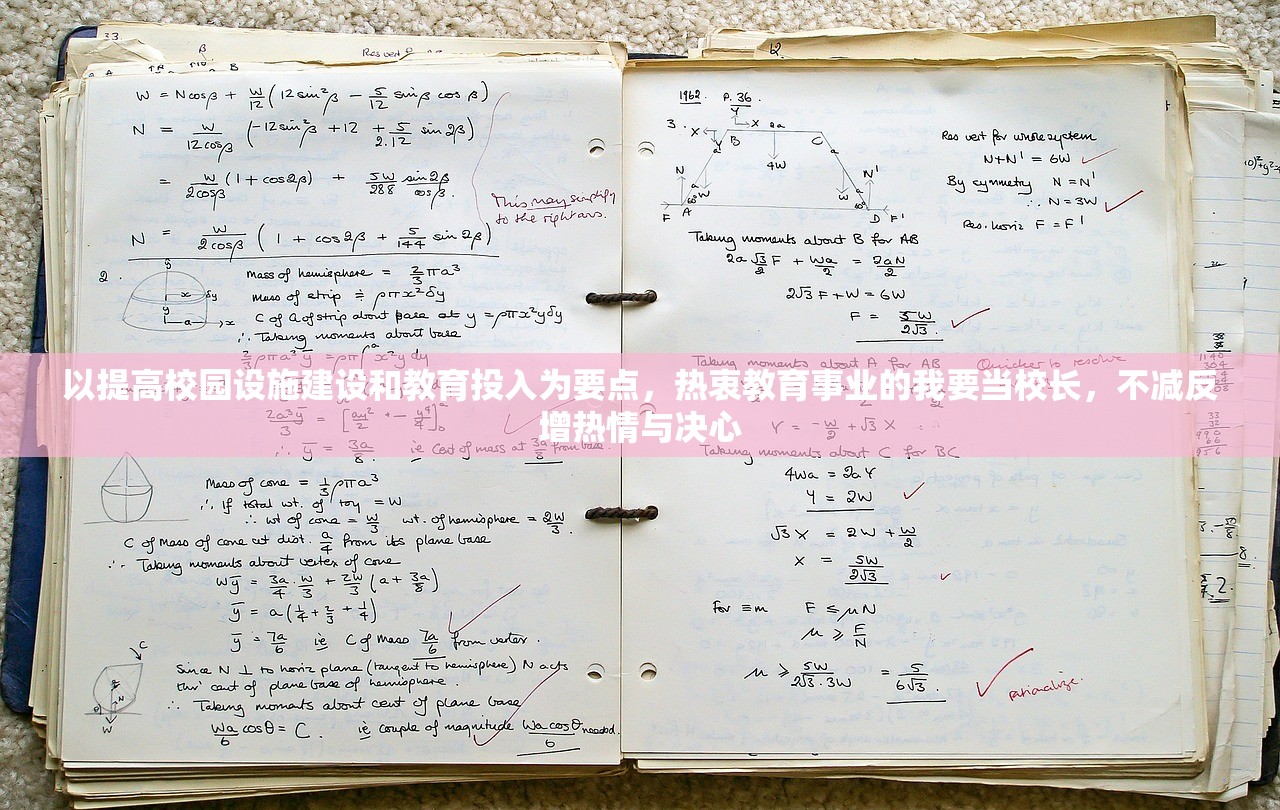 33.
β
Res vert
W = N cosβ + W/12 (12 sin²β − 5/12 sinβ cosβ)
N = W/12cosβ (−12 sin²β + 12 + 5/2.12 sin 2β)
= W/2cosβ (1 + cos2β) + 5W/288 sin2β/cosβ.
This may simplify
to the right ans.
N = W/2cosβ (1 + cos 2β + 5/144 sin 2β)
2.
y
x
δy
y
a
x
Mass of hemisphere = 2/3 πa³
Mass of strip ≑ ρπx²δy
C of G of strip about base at y = ρπx²yδy
∴ Taking moments about base
2/3 ρπa³ȳ = ρπ∫ᵃx²y dy
以提高校园设施建设和教育投入为要点，热衷教育事业的我要当校长，不减反
增热情与决心
2a³ȳ/3 =
∴ ȳ = 3a/8 ie Cent of mass at 3a/8 from base.
Mass of cone = 1/3 ρπa³
∴ If total wt. of toy = W
∴ wt of cone = W/3 wt. of hemisphere = 2W/3.
C of Mass of cone at dist. a/4 from its plane base
∴ Taking moments about vertex of cone
Wȳ = 3a/4 . W/3 + 2W/3 (a + 3a/8)
ȳ = a(1/4 + 2/3 + 1/4)
ȳ = 7a/6 ie C of Mass 7a/6 from vertex.
C
N
θ
W
Since N ⊥ to horiz plane (tangent to hemisphere) N acts
thro' cent of plane base of hemisphere.
∴ Taking moments about cent of plane base
Wa/6 cosθ = C. ie couple of magnitude Wa cosθ/6 needed.
12
1962. P. 36.
3.
X
Y
X
B
2a
C
Y
4W
N
N'
W
W
60°
60°
F
A
D
F'
Res vert for whole system
N+N' = 6W
By symmetry N = N'
∴ N = 3W
Res. horiz F = F'
Taking moments about B for AB
2a √3/2 F + Wa/2 = 2aN/2
2√3 F + W = 6W
F = 5W/2√3.
Taking moments about A for AB Quicker to resolve
Y = −W/2 + √3 X
Taking moments about C for BC
4Wa = 2aY
Y = 2W
√3 X = 2W + W/2
X = 5W/2√3
For ≡m F ≤ μN
μ ≥ F/N
μ ≥ 5W/2√3.3W = 5/6√3.
rationalize.